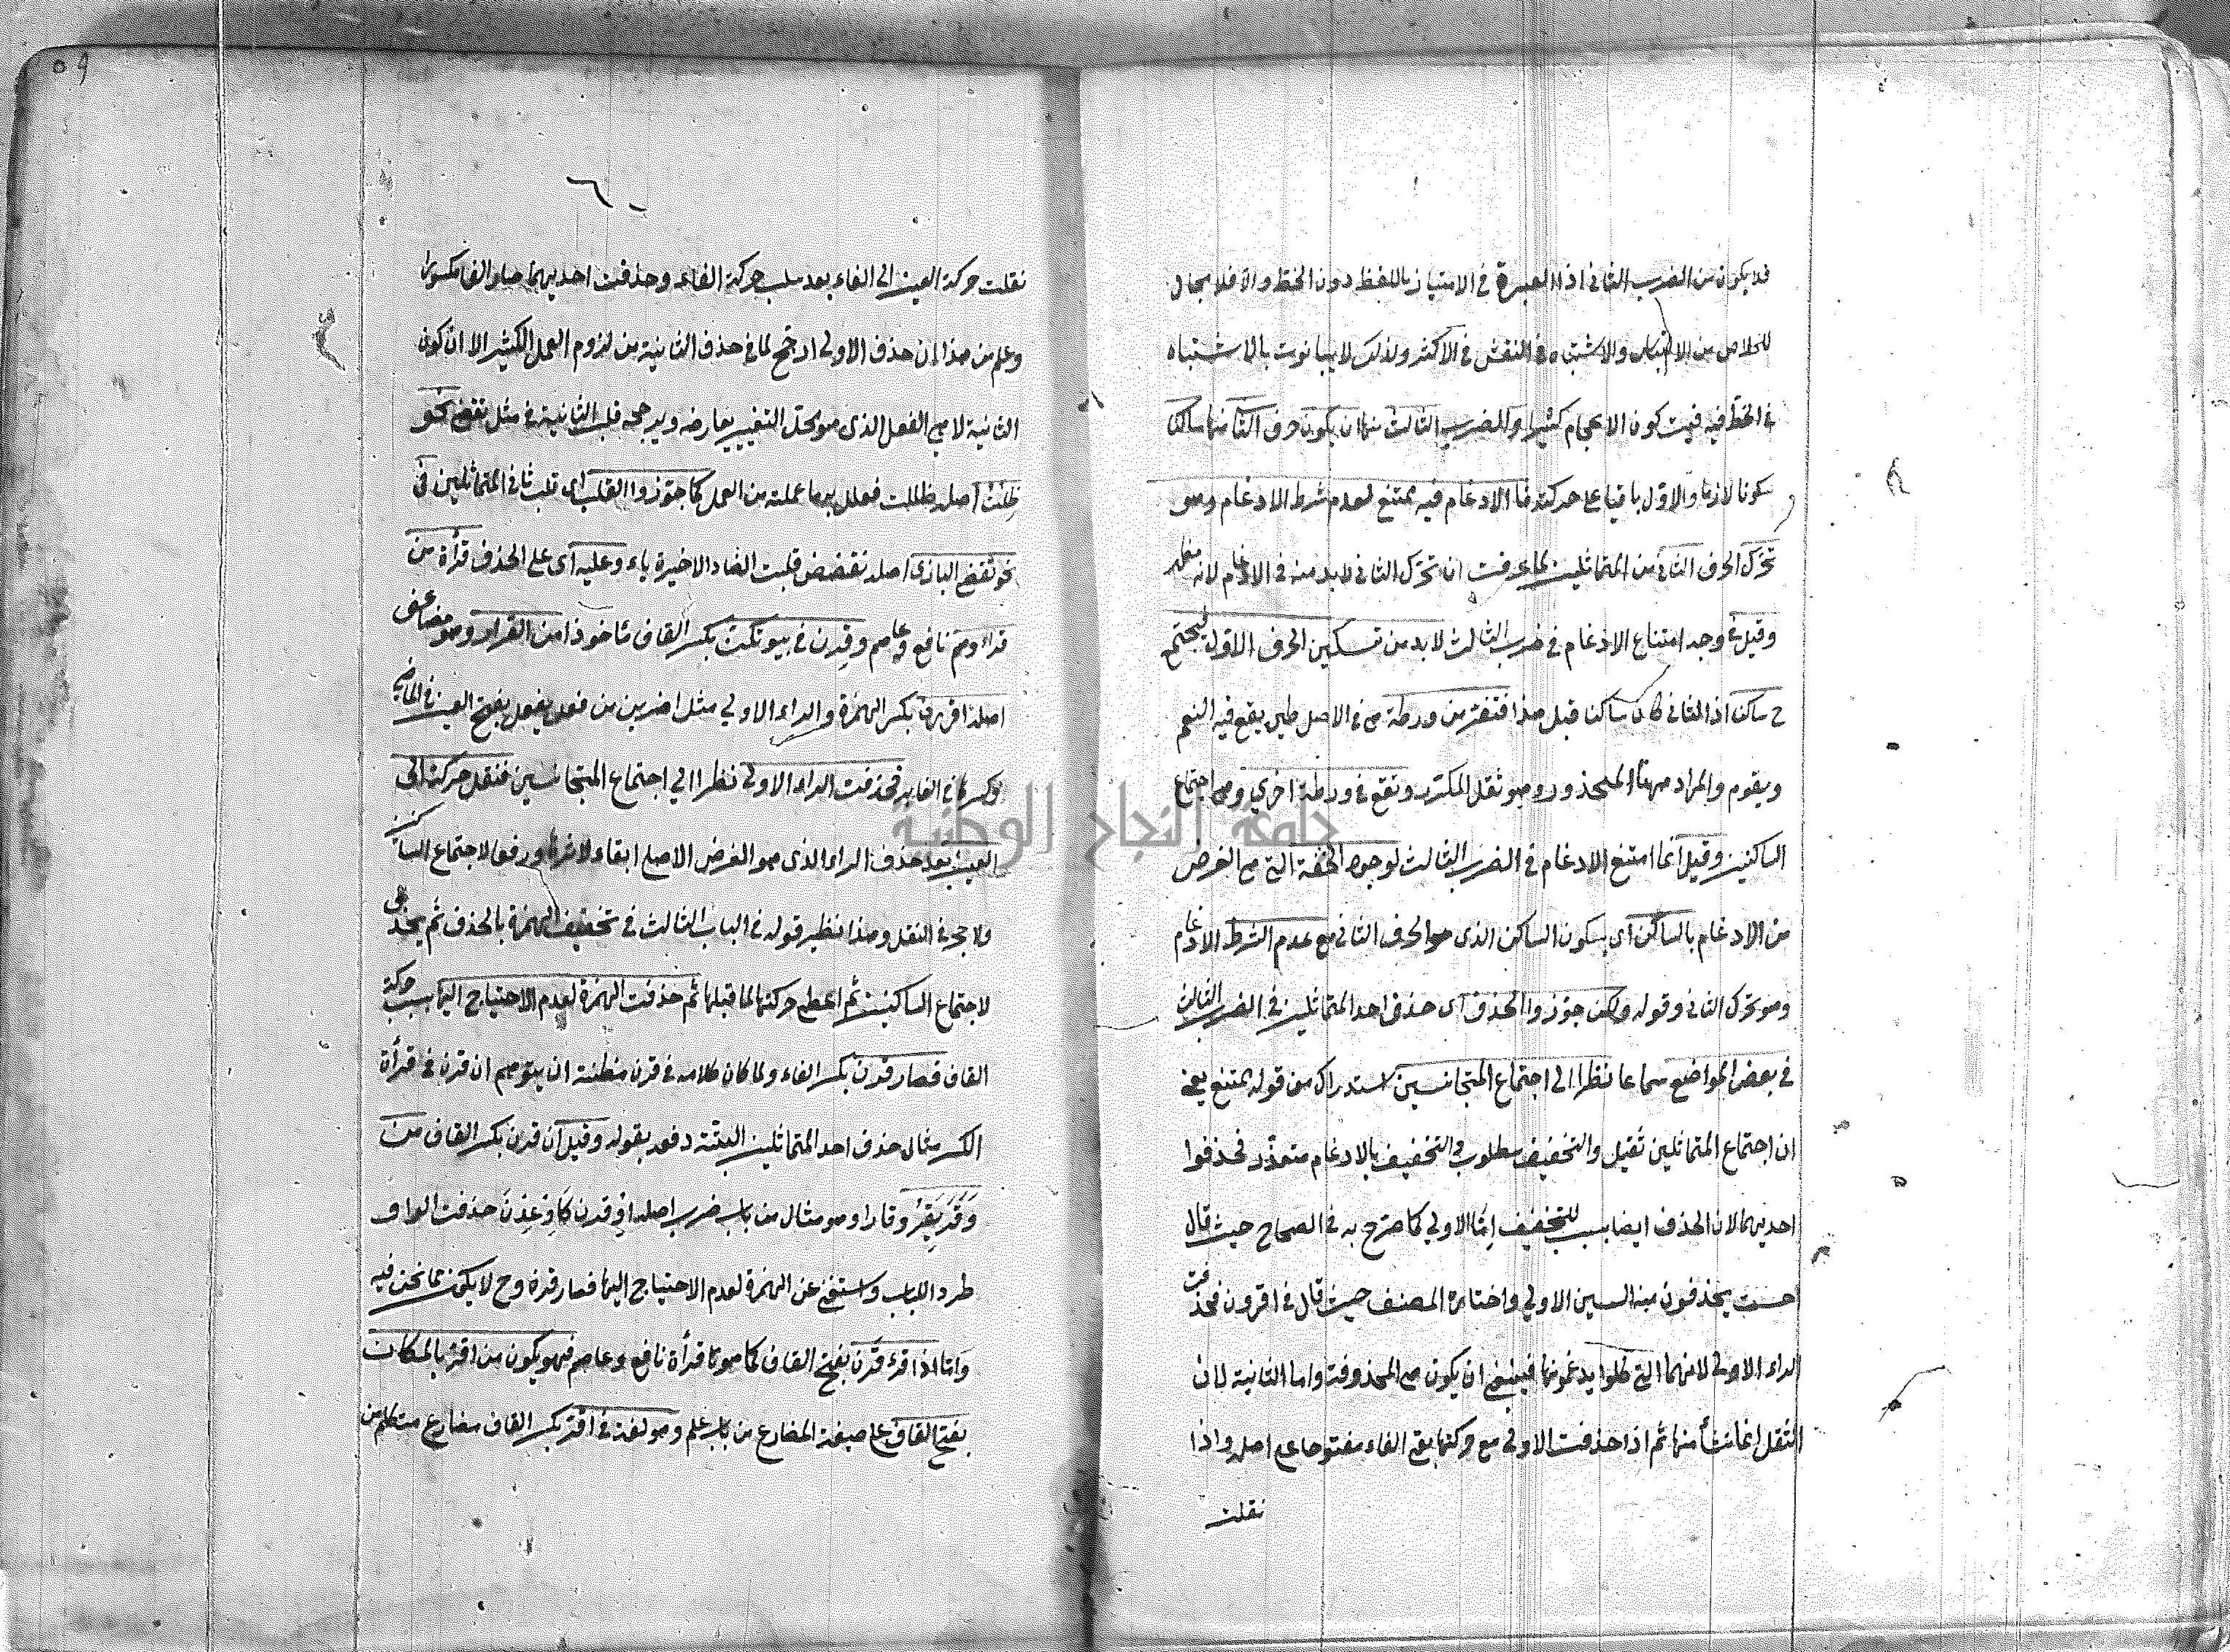 فلا يكون من الضرب الثاني اذ العبرة في الامتياز باللفظ دون الخط والا فلا مجال
للخلاص من الالتباس والاشتباه في النقش في الاكثر ولذلك لا يبالون بالاشتباه
في الخط فيه فيمت كون الاعجام كثيرا والضرب الثالث منها ان يكون حرف الثا منها ساكنا
سكونا لازما والاول باقيا على حركته فالادغام فيه ممتنع لعدم شرط الادغام وهو
تحرك الحرف الثاني من المتماثلين لما عرفت ان تحرك الثاني لابد منه في الادغام لانه مظهر
وقيل في وجه امتناع الادغام في ضرب الثالث لابد من تسكين الحرف الاول فيجتمع
ح ساكنا اذ الثاني كان ساكنا قبل هذا فتفر من ورطة هي في الاصل طين يقع فيه النعم
ويقوم والمراد ههنا المحذور وهو ثقل المكرر وتقع في ورطة اخرى وهي اجتماع
الساكنين وقيل انما امتنع الادغام في الضرب الثالث لوجود الخفة التي هي الغرض
من الادغام بالساكن اى بسكون الساكن الذى هو الحرف الثاني مع عدم الشرط الادغام
وهو تحرك الثاني وقوله ولكن جوزوا الحذف اى حذف احد المتماثلين في الضرب الثالث
في بعض المواضع سماعا نظرا الى اجتماع المتجانسين استدراك من قوله ممتنع يعنى
ان اجتماع المتماثلين ثقيل والتخفيف مطلوب والتخفيف بالادغام متعذر فحذفوا
احديهما لان الحذف ايضا سبب للتخفيف اما الاولى كما صرح به في الصحاح حيث قال
احست يحذفون منه السين الاولى واختاره المصنف حيث قال في اقررن فحذفت
الراء الاولى لانهما التى كلوا يدغمونها فينبغي ان يكون هي المحذوفة واما الثانية لان
الثقل انما نشأ منها ثم اذا حذفت الاولى مع حركتها بقى الفاء مفتوحا على اصله واذا
نقلت
نقلت حركة العين الى الفاء بعد سلب حركة الفاء وحذفت احديهما صار الفا مكسورا
وعلم من هذا ان حذف الاولى ارجح لما في حذف الثانية من لزوم العمل الكثير الا ان كون
الثانية لامي الفعل الذى هو محل التغيير يعارضه ويرجحه قلب الثانية في مثل تقضى نحو
ظلت اصله ظللت فعلل به ما عملته من العمل كما جوزوا القلب اى قلب ثاني المتماثلين في
نحو تقضى البازى اصله تقضض قلبت الضاد الاخيرة ياء وعليه اى على الحذف قرأة من
قراء وهم نافع وعاصم وقرن في بيوتكن بكسر القاف ماخوذا من القرار وهو مضاعف
اصله اقررن بكسر الهمزة والراء الاولى مثل اضربن من فعل يفعل بفتح العين في الماضى
وكسرها في الغابر فحذفت الراء الاولى نظرا الى اجتماع المتجانسين فنقل حركته الى
العين بعد حذف الراء الذى هو الغرض الاصلى ابقاء لاثرها ورفعا لاجتماع الساكنين
ولا حجر في النقل وهذا نظير قوله في الباب الثالث في تخفيف الهمزة بالحذف ثم يحذف
لاجتماع الساكنين ثم اعطى حركتها لما قبلها ثم حذفت الهمزة لعدم الاحتياج اليها بسبب حركة
القاف فصار قرن بكسر الفاء ولما كان كلامه في قرن مظنة ان يتوهم ان قرن في قرأة
الكسر مثال حذف احد المتماثلين البتة دفعه بقوله وقيل ان قرن بكسر القاف من
وَقَرَ يَقِرُ وقارا وهو مثال من باب ضرب اصله اوقرن كاوعدن حذفت الواو
طردا للباب واستغنى عن الهمزة لعدم الاحتياج اليها فصار قرن وح لا يكون مما نحن فيه
واما اذا قرء قرن بفتح القاف كما هو قرأة نافع وعاصم فهو يكون من اقر بالمكان
بفتح القاف على صيغة المضارع من باب علم وهو لغة في اقر بكسر القاف مضارع متكلم من
جامعة النجاح الوطنية